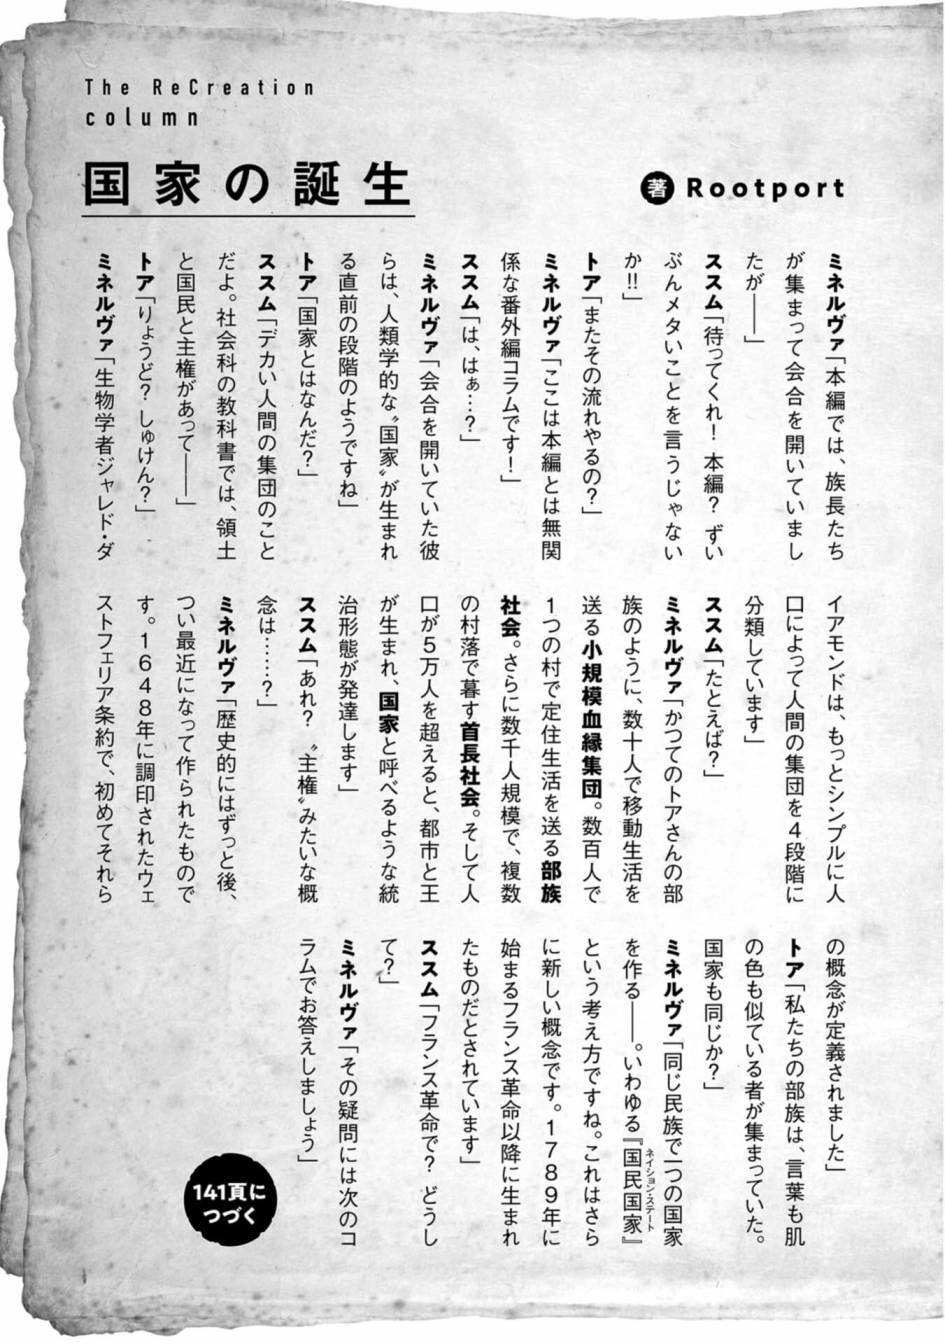 The ReCreation
column
国家の誕生
著 Rootport
ミネルヴァ「本編では、族長たち
が集まって会合を開いていまし
たが――」
ススム「待ってくれ！ 本編？ ずい
ぶんメタいことを言うじゃない
か!!」
トア「またその流れやるの？」
ミネルヴァ「ここは本編とは無関
係な番外編コラムです！」
ススム「は、はぁ…？」
ミネルヴァ「会合を開いていた彼
らは、人類学的な〝国家〟が生まれ
る直前の段階のようですね」
トア「国家とはなんだ？」
ススム「デカい人間の集団のこと
だよ。社会科の教科書では、領土
と国民と主権があって――」
トア「りょうど？ しゅけん？」
ミネルヴァ「生物学者ジャレド・ダ
イアモンドは、もっとシンプルに人
口によって人間の集団を４段階に
分類しています」
ススム「たとえば？」
ミネルヴァ「かつてのトアさんの部
族のように、数十人で移動生活を
送る小規模血縁集団。数百人で
１つの村で定住生活を送る部族
社会。さらに数千人規模で、複数
の村落で暮す首長社会。そして人
口が５万人を超えると、都市と王
が生まれ、国家と呼べるような統
治形態が発達します」
ススム「あれ？ 〝主権〟みたいな概
念は……？」
ミネルヴァ「歴史的にはずっと後、
つい最近になって作られたもので
す。１６４８年に調印されたウェ
ストフェリア条約で、初めてそれら
の概念が定義されました」
トア「私たちの部族は、言葉も肌
の色も似ている者が集まっていた。
国家も同じか？」
ミネルヴァ「同じ民族で一つの国家
を作る――。いわゆる『国民国家』
ネイション・ステート
という考え方ですね。これはさら
に新しい概念です。１７８９年に
始まるフランス革命以降に生まれ
たものだとされています」
ススム「フランス革命で？ どうし
て？」
ミネルヴァ「その疑問には次のコ
ラムでお答えしましょう」
141頁に
つづく